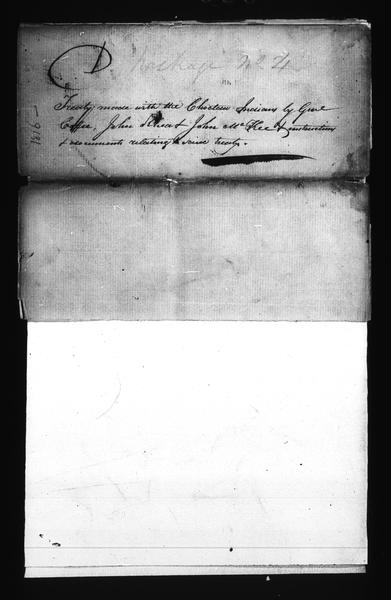 D. Package No. 4
1816
Treaty made with the Choctaw Indians by Genl
Coffee, John Rhea & John McKee & instructions
& documents relating to said treaty.